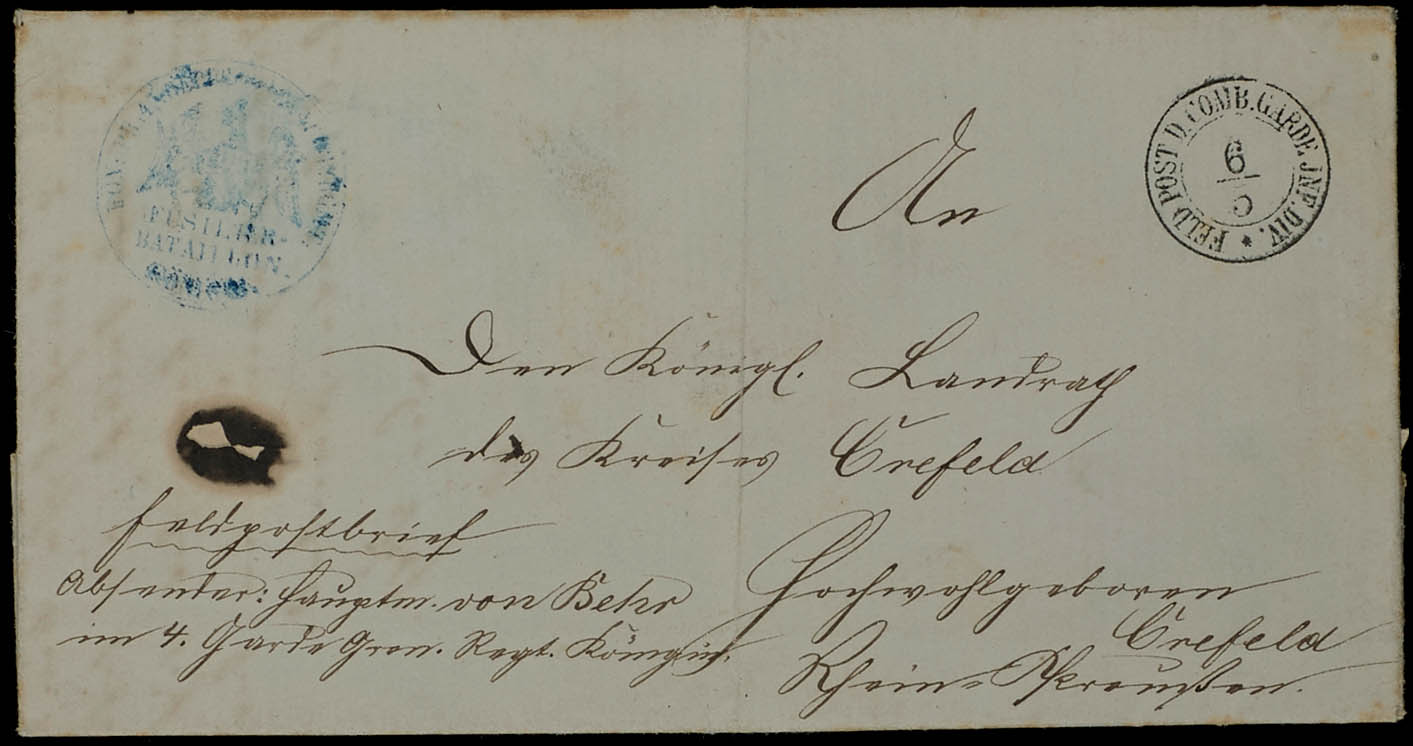 FUSILIER-
BATAILLON.
FELD POST D. COMB. GARDE JNF. DIV. *
6
5
An
Den Königl. Landrath
des Kreises Crefeld
Hochwohlgeboren
Crefeld
Rhein-Preußen.
Feldpostbrief
Absender: Hauptm. von Behr
im 4. Garde Gren. Regt. Königin.